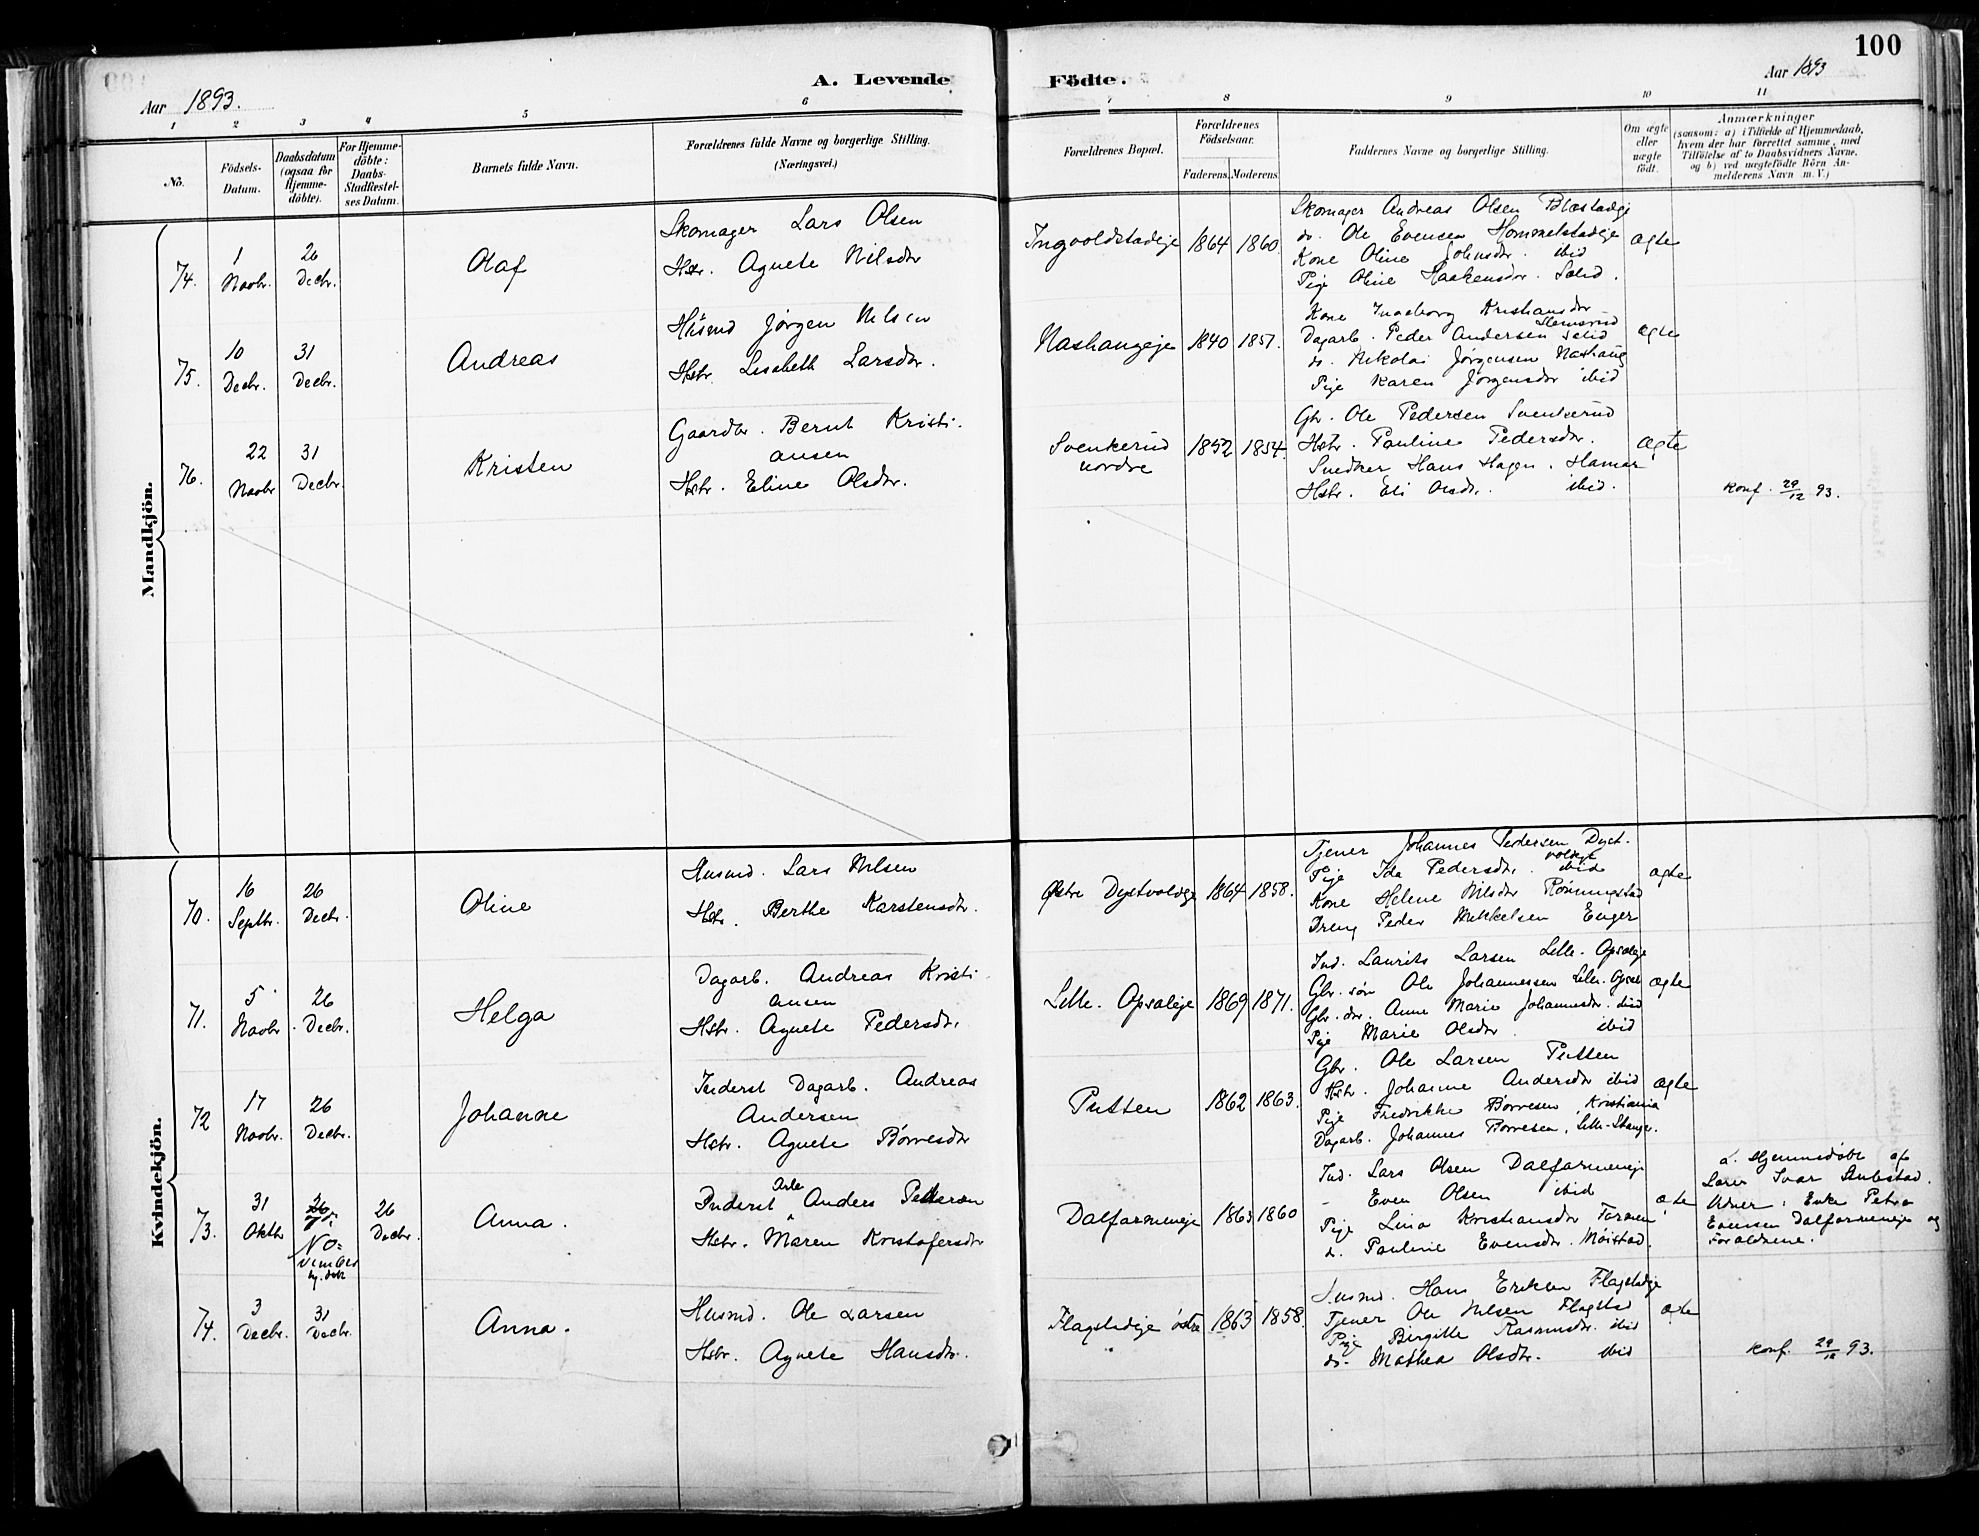 100
A. Levende Födte.
Aar 1893.
Aar 1893
1 2 3 4 5 6 7 8 9 10 11
No.
Födsels-
Datum.
Daabsdatum
(ogsaa for
Hjemme-
döbte).
For Hjemme-
döbte:
Daabs-
Stadfestel-
ses Datum.
Barnets fulde Navn.
Forældrenes fulde Navne og borgerlige Stilling.
(Næringsvei.)
Forældrenes Bopæl.
Forældrenes
Födselsaar.
Faderens. Moderens.
Faddernes Navne og borgerlige Stilling.
Om ægte
eller
uægte
födt.
Anmærkninger
(saasom: a) i Tilfælde af Hjemmedaab,
hvem der har forrettet samme, med
Tilföielse af to Daabsvidners Navne.
og b) ved uægtefödte Börn An-
melderens Navn m. V.)
Mandkjön.
74.
1
Novbr.
26
Decbr.
Olaf
Skomager Lars Olsen
Hstr. Agnete Nilsdtr
Ingvoldstadeje 1864 1860.
Skomager Andreas Olsen Blæstadeje
do. Ole Evensen Hommelstadeje
Kone Oline Johnsdtr. ibid
Pige Oline Haakensdtr.
ægte
75.
10
Decbr.
31
Decbr.
Andreas
Husmd Jørgen Nilsen
Hstr. Lisabeth Larsdtr.
Nashaugeje 1840 1857.
Kone Ingeborg Kristiansdtr
Dagarb. Peder Andersen
do. Nikolai Jørgensen Nashaug
Pige Karen Jørgensdtr ibid
ægte
76.
22
Novbr
31
Decbr.
Kristen
Gaardbr. Bernt Kristi-
ansen
Hstr. Eline Olsdtr.
Svenkerud
nordre
1852 1854.
Gbr. Ole Pedersen Svenkerud
Hstr. Pauline Pedersdtr.
Snedker Hans Hagen. Hamar
Hstr. Eli Olsdtr. ibid.
ægte
Konf. 29/12 93.
Kvindekjön.
70.
16
Septbr.
26
Decbr.
Oline
Husmd. Lars Nilsen
Hstr. Berthe Karstensdtr.
Østre Dystvoldeje 1864 1858.
Tjener Johannes Pedersen Dyst-
voldeje
Pige Ida Pedersdtr. ibid
Kone Helene Nilsdtr Rønningstad
Dreng Peder Mikkelsen Enger
ægte
71.
5
Novbr.
26
Decbr.
Helga
Dagarb. Andreas Kristi-
ansen
Hstr. Agnete Pedersdtr.
Lille-Opsaleje 1869 1871.
Ind. Laurits Larsen Lille-Opsaleje
Gbr. søn Ole Johannessen Lille-Opsal
Gbr. dtr. Anne Marie Johannesdtr. ibid
Pige Marie Olsdtr ibid
ægte
72
17
Novbr.
26
Decbr.
Johanne
Inderst Dagarb. Andreas
Andersen
Hstr. Agnete Børresdtr
Putten 1862 1863.
Gbr. Ole Larsen Putten
Hstr. Johanne Andersdtr ibid
Pige Fredrikke Børresen, Kristiania
Dagarb. Johannes Børresen, Lille-Stange.
ægte
73.
31
Oktbr
26
No-
vember
26
Decbr.
Anna.
Inderst Anders Pedersen
Hstr. Maren Kristofersdtr
Dalfarmeneje 1863 1860
Ind. Lars Olsen Dalfarmeneje
- Even Olsen ibid
Pige Lina Kristiansdtr Farmen
do. Pauline Evensdtr. Moistad.
ægte
a. Hjemmedøbt af
Lærer Ivar
Vidner: Enke Petra
Evensen Dalfarmeneje og
Forældrene.
74.
3
Decbr.
31
Decbr.
Anna.
Husmd. Ole Larsen
Hstr. Agnete Hansdtr.
Flagstadeje østre 1863 1858.
Husmd. Hans Eriksen Flagstadeje
Tjener Ole Nilsen Flagstad
Pige Birgitte Rasmusdtr. ibid
do. Mathea Olsdtr. ibid
ægte
Konf. 29/12 93.